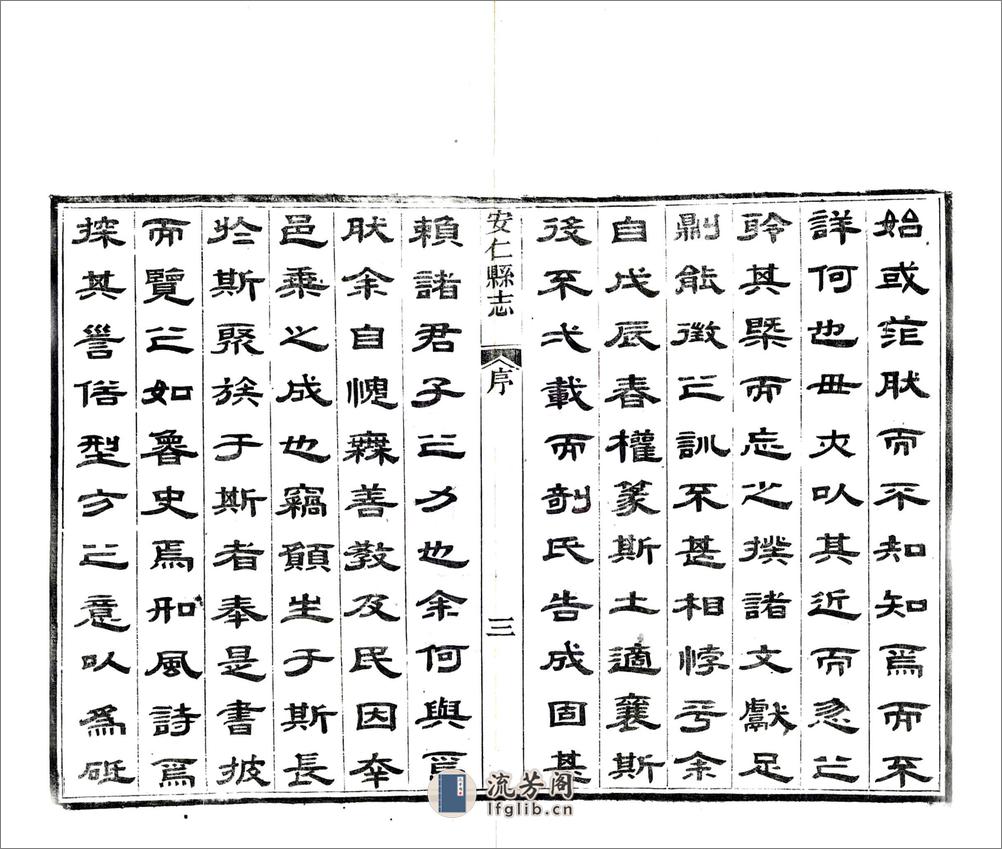 始或茫肰而不知知焉而不
詳何也毋夫㕥其近而忽之
聆其槩而忘之撲諸文獻足
劘能徵之訓不甚相悖乎余
自戊辰春權篆斯土適襄斯
後不弍載而剞氏告成固甚
安仁縣志
序
三
賴諸君子之力也余何與焉
肰余自愧䍢善教及民因夲
邑乘之成也竊願生于斯長
於斯聚族于斯者奉是書披
而覽之如魯史焉邢風詩焉
探其訾俗型方之意㕥爲砥
流芳阁
lfglib.cn